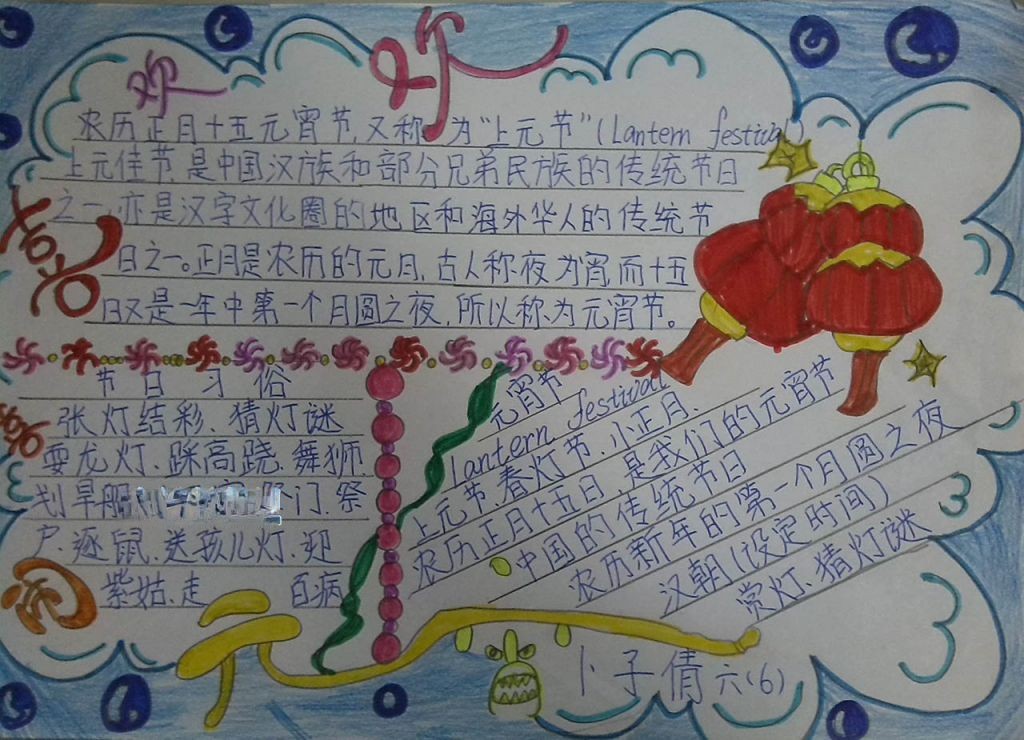 欢
农历正月十五元宵节,又称 为“上元节”(Lantern festival)
上元佳节是中国汉族和部分兄弟民族的传统节日
之一,亦是汉字文化圈的地区和海外华人的传统节
日之一。正月是农历的元月,古人称夜为宵,而十五
日又是一年中第一个月圆之夜,所以称为元宵节。
节日习俗
张灯结彩、猜灯谜
耍龙灯、踩高跷、舞狮
划旱船 门、祭
户、逐鼠、送孩儿灯、迎
紫姑、走 百病
元宵节
lantern festival
上元节、春灯节、小正月、
农历正月十五日 是我们的元宵节
中国的传统节日
农历新年的第一个月圆之夜
汉朝(设定时间)
赏灯、猜灯谜
元
卜子倩 六(6)